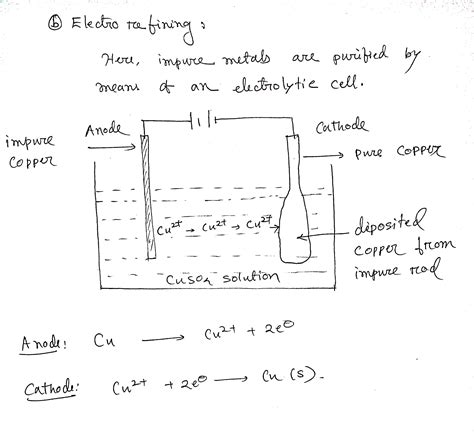 ⓑ Electro refining:
Here, impure metals are purified by
means of an electrolytic cell.
Anode
Cathode
impure
copper
pure copper
Cu²⁺ → Cu²⁺ → Cu²⁺
deposited
copper from
impure rod
CuSO₄ solution
Anode: Cu → Cu²⁺ + 2e⊖
Cathode: Cu²⁺ + 2e⊖ → Cu (s).